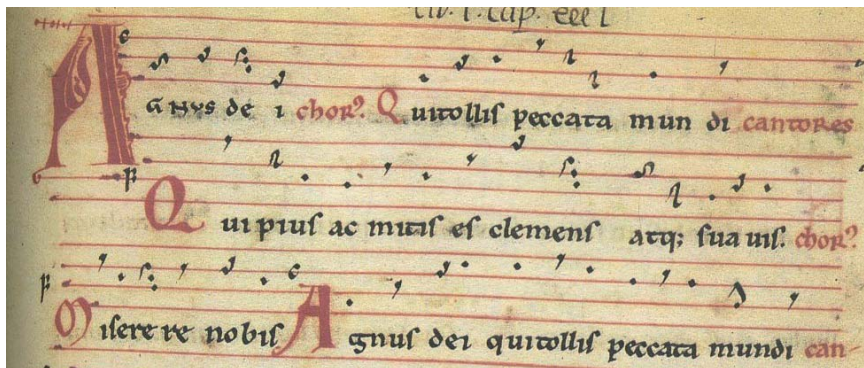 Lib. I. cap. xxxi
AGNUS DE I chor? Qui tollis peccata mun di cantores
Qui pius ac mitis es clemens atq; sua uis. chor?
Miserere re nobis Agnus dei qui tollis peccata mundi can-